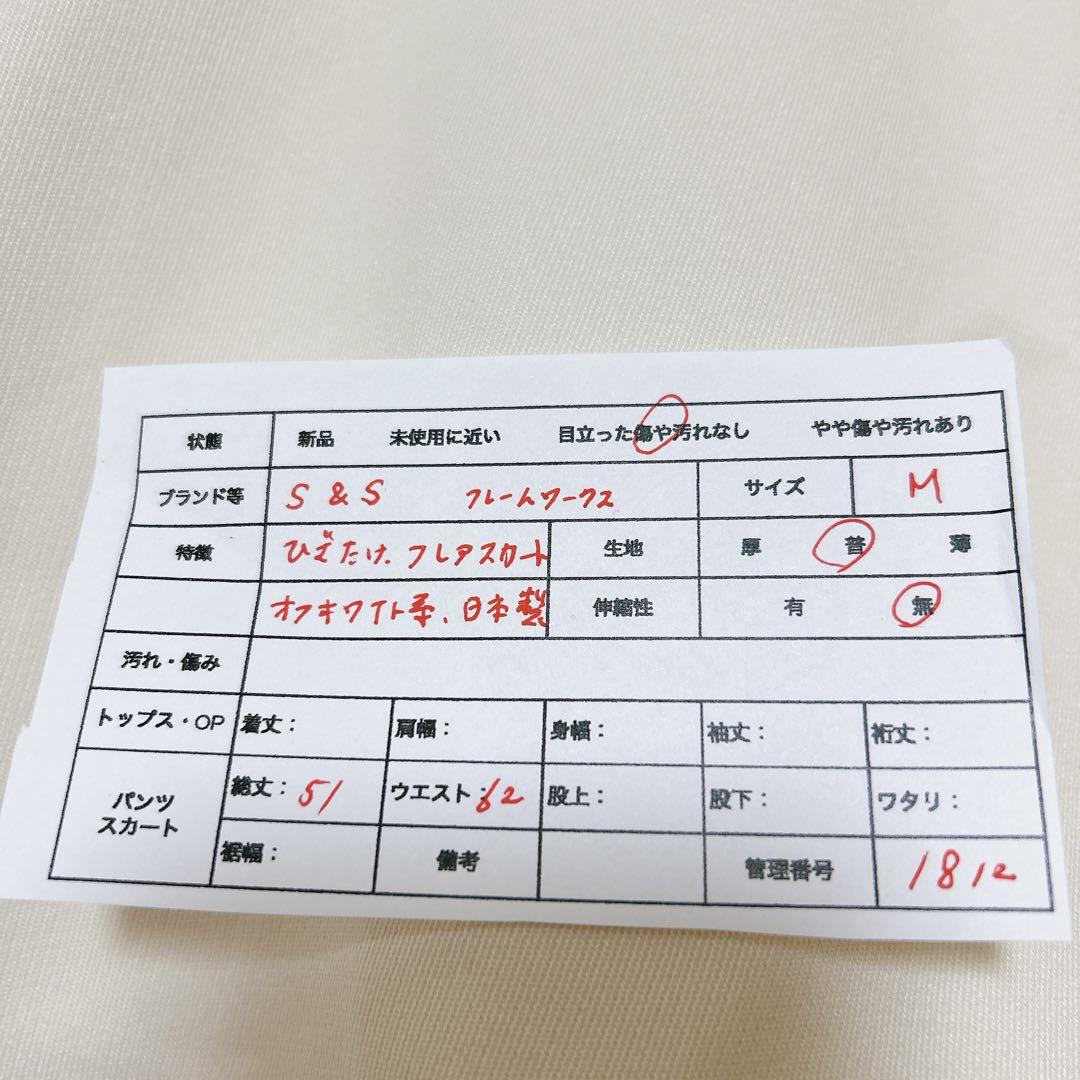 状態 新品 未使用に近い 目立った傷や汚れなし やや傷や汚れあり
ブランド等 S & S フレームワークス サイズ M
特徴 ひざたけ、フレアスカート 生地 厚 普 薄
オフホワイト系、日本製 伸縮性 有 無
汚れ・傷み
トップス・OP 着丈： 肩幅： 身幅： 袖丈： 裄丈：
パンツ スカート 総丈：51 ウエスト：62 股上： 股下： ワタリ：
裾幅： 備考 管理番号 1812